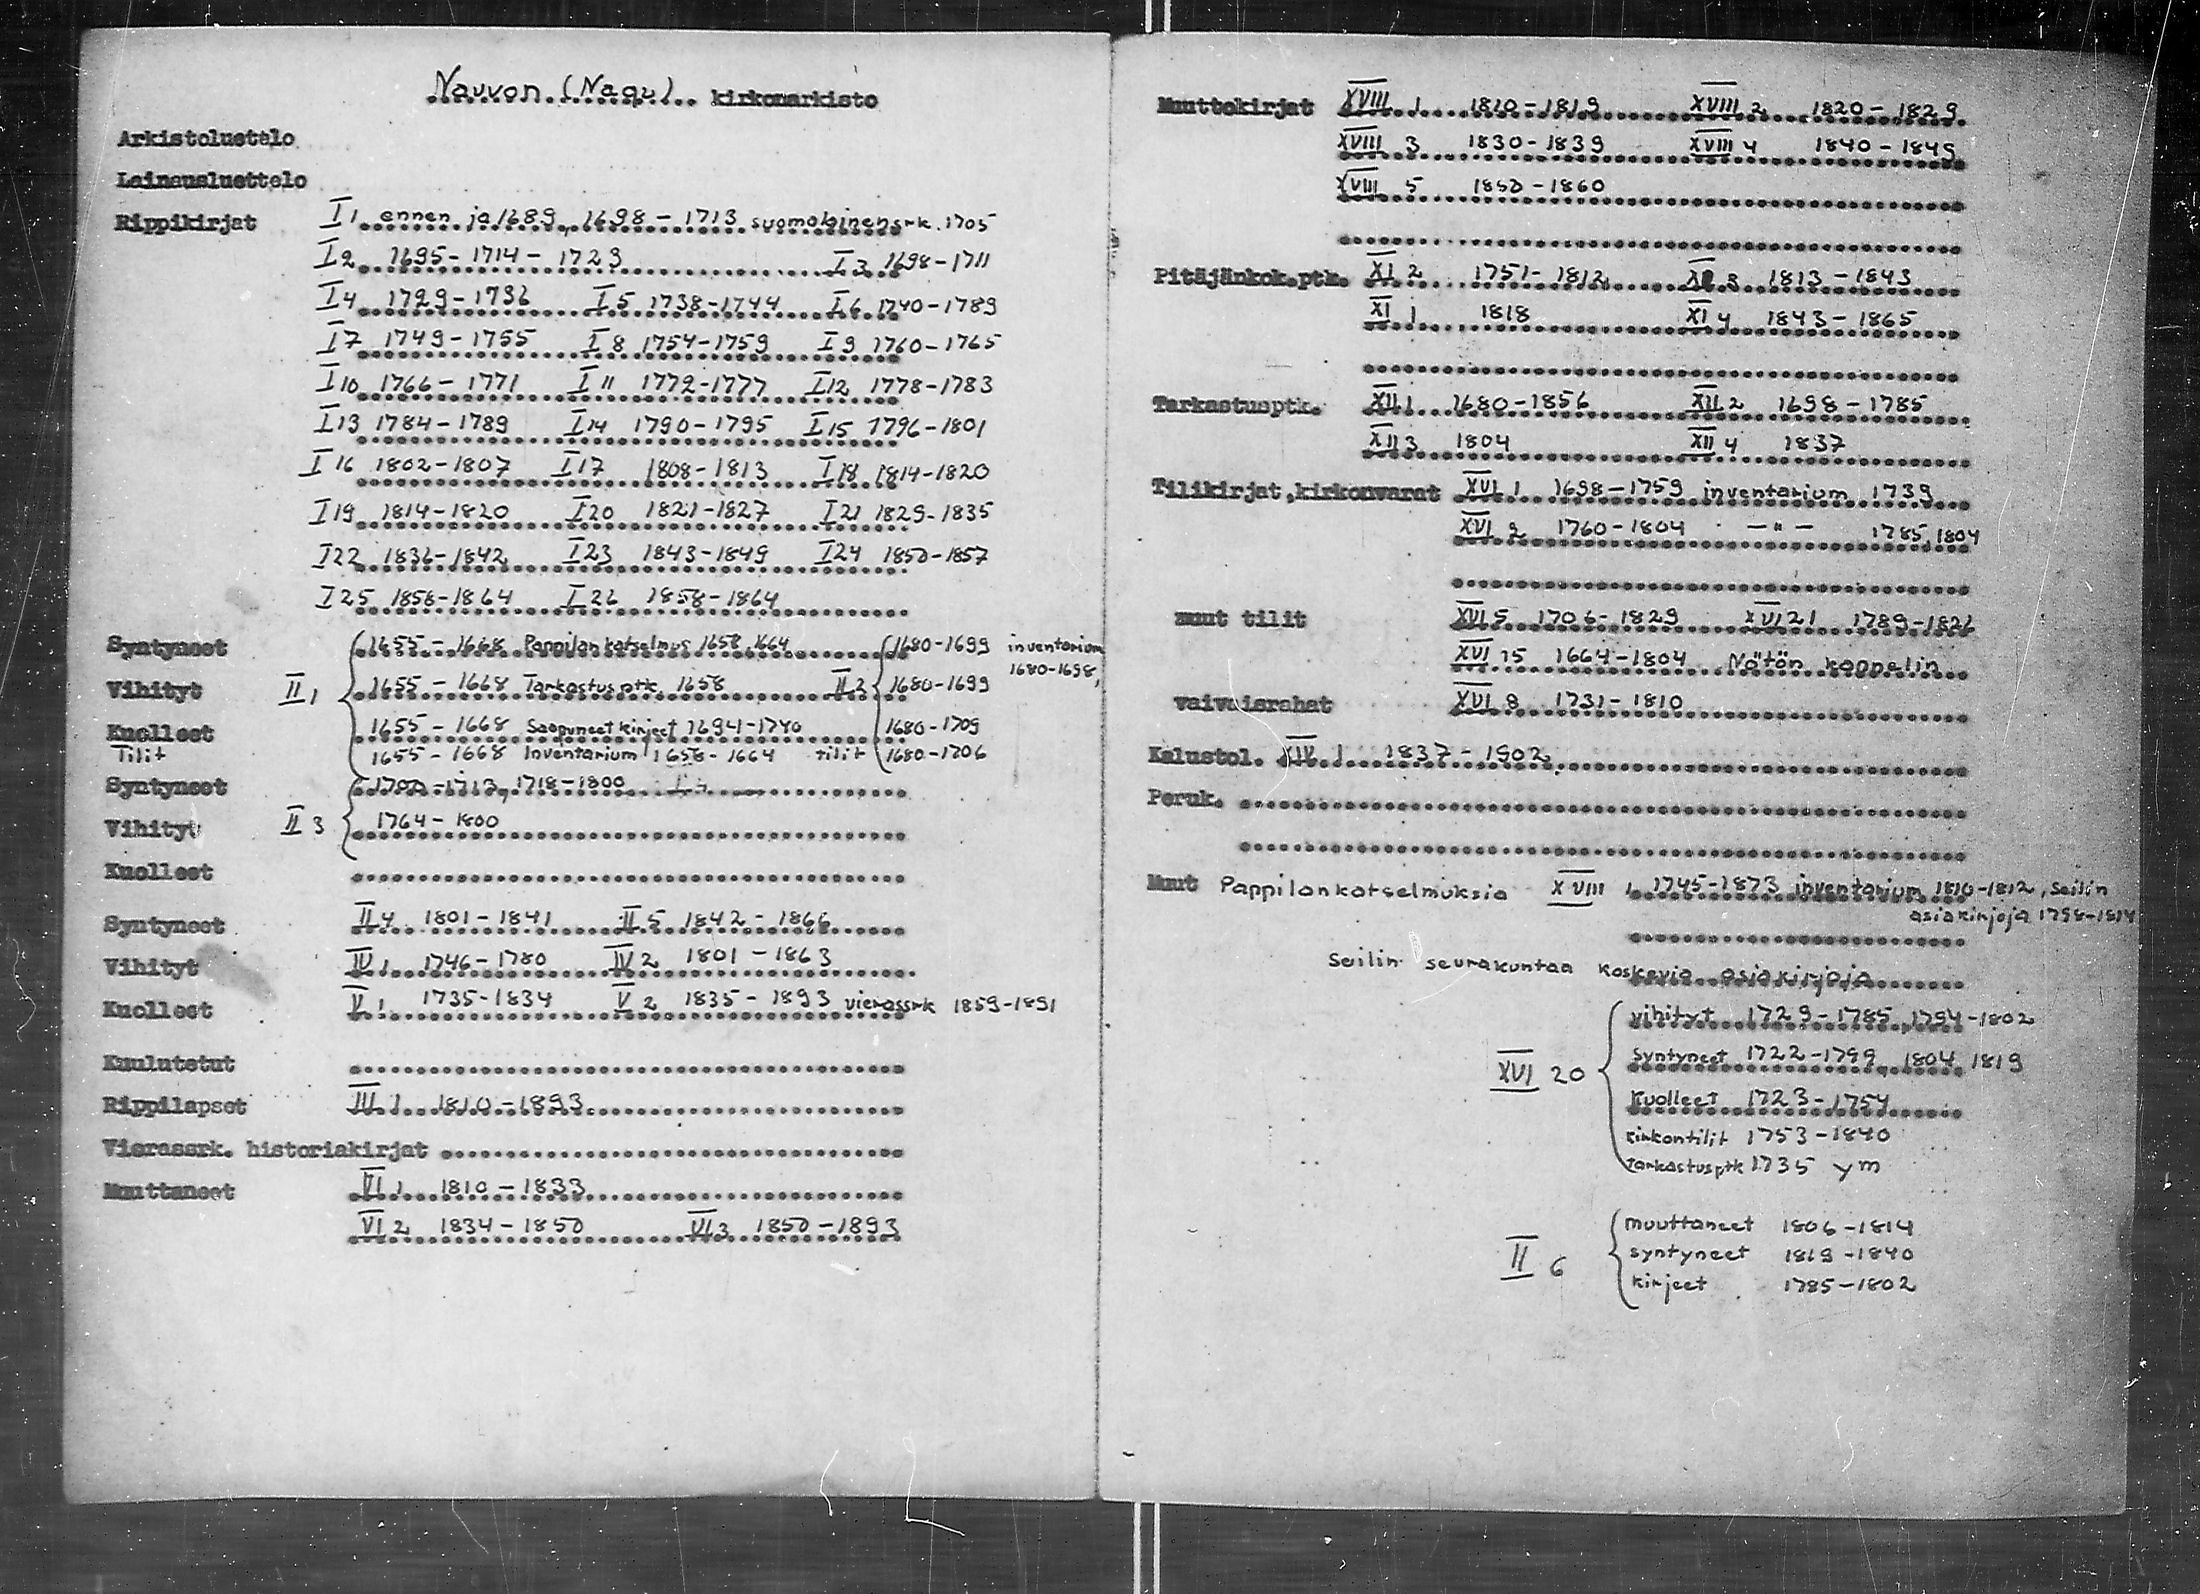 Nauvon (Nagu) kirkonarkisto
Arkistoluettelo
Lainausluettelo
Rippikirjat I 1 ennen ja 1689, 1698-1713 suomalainen srk. 1705
I 2 1695-1714-1723 I 3 1698-1711
I 4 1729-1736 I 5 1738-1744 I 6 1740-1789
I 7 1749-1755 I 8 1754-1759 I 9 1760-1765
I 10 1766-1771 I 11 1772-1777 I 12 1778-1783
I 13 1784-1789 I 14 1790-1795 I 15 1796-1801
I 16 1802-1807 I 17 1808-1813 I 18 1814-1820
I 19 1814-1820 I 20 1821-1827 I 21 1829-1835
I 22 1836-1842 I 23 1843-1849 I 24 1850-1857
I 25 1858-1864 I 26 1858-1864
Syntyneet 1655-1668 Pappilan katselmus 1658, 1664 1680-1699 inventarium
1680-1698,
Vihityt II 1 1655-1668 Tarkastusptk. 1658 II 2 1680-1699
Kuolleet 1655-1668 Saapuneet kirjeet 1694-1740 1680-1709
Tilit 1655-1668 Inventarium 1658-1664 tilit 1680-1706
Syntyneet 1700-1713, 1718-1800
Vihityt II 3 1764-1800
Kuolleet
Syntyneet II 4 1801-1841 II 5 1842-1866
Vihityt IV 1 1746-1780 IV 2 1801-1863
Kuolleet V 1 1735-1834 V 2 1835-1893 vierassrk 1859-1891
Kuulutetut
Rippilapset III 1 1810-1893
Vierassrk. historiakirjat
Muuttaneet VI 1 1810-1833
VI 2 1834-1850 VI 3 1850-1893
Muuttokirjat XVIII 1 1810-1819 XVIII 2 1820-1829
XVIII 3 1830-1839 XVIII 4 1840-1849
XVIII 5 1850-1860
Pitäjänkok.ptk. XI 2 1751-1812 XI 3 1813-1843
XI 1 1818 XI 4 1843-1865
Tarkastusptk. XII 1 1680-1856 XII 2 1698-1785
XII 3 1804 XII 4 1837
Tilikirjat, kirkonvarat XVI 1 1698-1759 inventarium 1739
XVI 2 1760-1804 -"- 1785, 1804
muut tilit XVI 5 1706-1829 XVI 21 1789-1826
XVI 15 1664-1804 Nötön kappelin
vaivaisrahat XVI 8 1731-1810
Kalustol. XIV 1 1837-1902
Peruk.
Muut Pappilankatselmuksia XVIII 1 1745-1873 inventarium 1810-1812, Seilin
asiakirjoja 1798-1814
Seilin seurakuntaa koskevia asiakirjoja
vihityt 1729-1785, 1794-1802
XVI 20 syntyneet 1722-1799, 1804, 1819
kuolleet 1723-1754
kirkontilit 1753-1840
tarkastusptk 1735 ym
muuttaneet 1806-1814
II 6 syntyneet 1819-1840
kirjeet 1785-1802